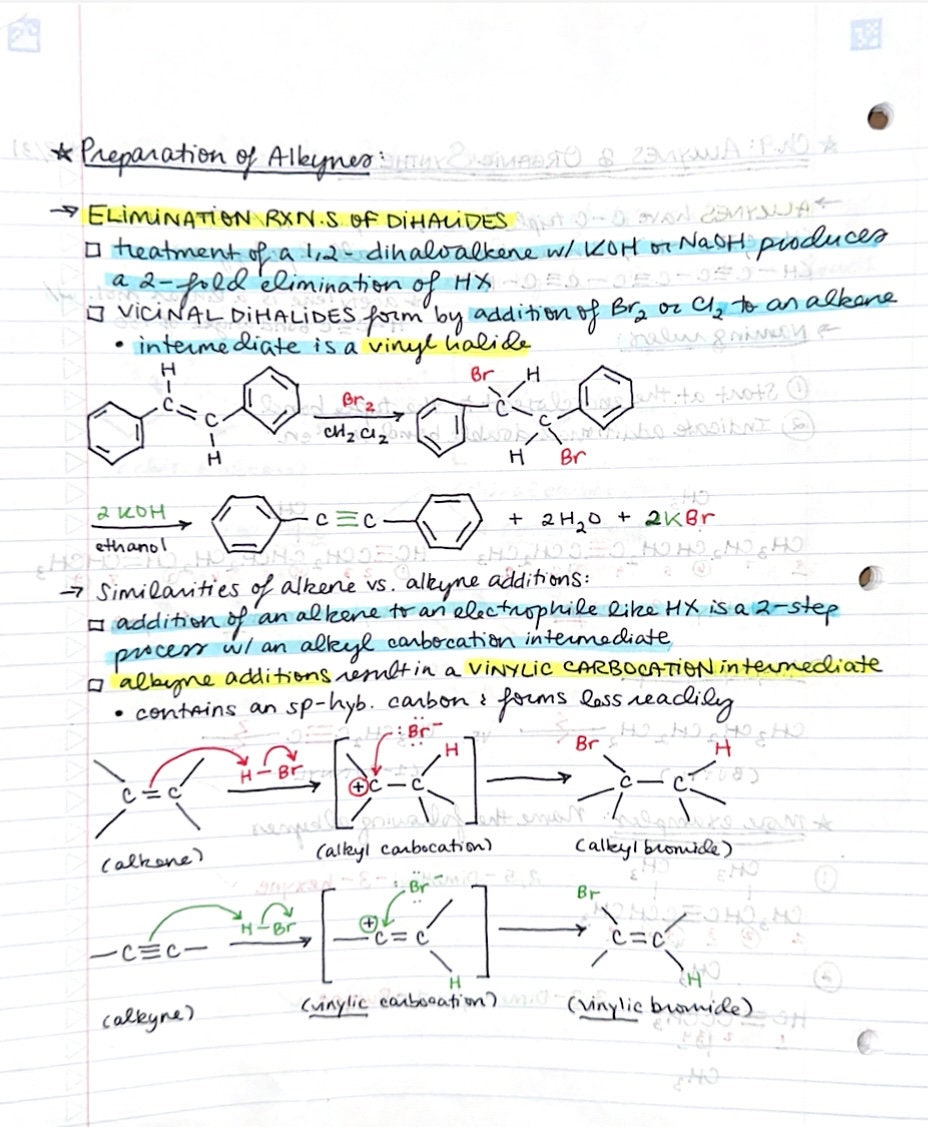 * Preparation of Alkynes:
→ ELIMINATION RXN.S OF DIHALIDES
□ treatment of a 1,2-dihaloalkene w/ KOH or NaOH produces
a 2-fold elimination of HX
□ VICINAL DIHALIDES form by addition of Br₂ or Cl₂ to an alkene
• intermediate is a vinyl halide
H
C=C
H
Br₂
CH₂Cl₂
Br H
C
C
H Br
2 KOH
ethanol
C≡C
+ 2H₂O + 2KBr
→ Similarities of alkene vs. alkyne additions:
□ addition of an alkene to an electrophile like HX is a 2-step
process w/ an alkyl carbocation intermediate
□ alkyne additions result in a VINYLIC CARBOCATION intermediate
• contains an sp-hyb. carbon & forms less readily
C=C
H-Br
:Br:⁻
H
⊕C-C
Br H
C-C
(alkene)
(alkyl carbocation)
(alkyl bromide)
-C≡C-
H-Br
:Br:⁻
⊕
-C=C
H
Br
C=C
H
(alkyne)
(vinylic carbocation)
(vinylic bromide)